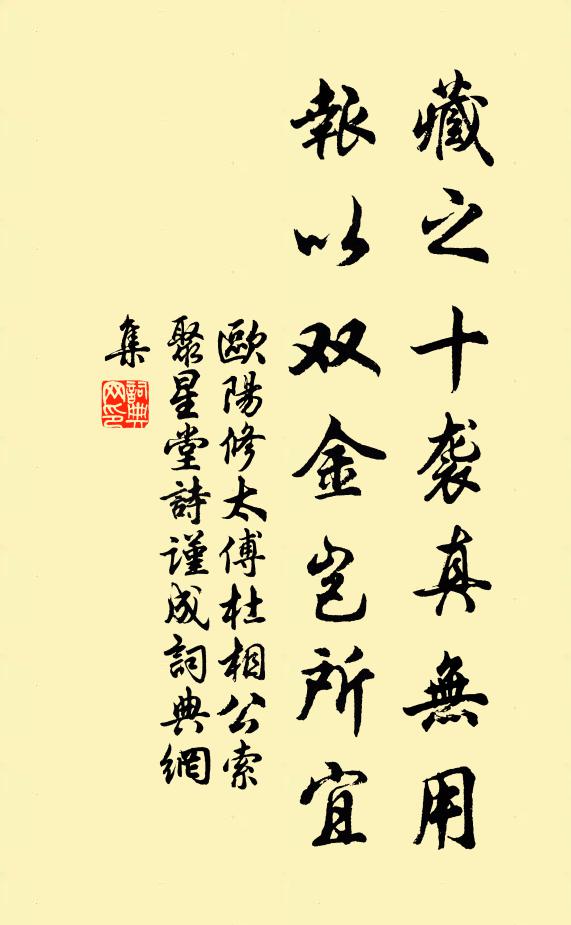 藏之十袭真無用
報以双金岂所宜
歐陽修太傅杜相公索
聚星堂詩谨成詞典網
集
詞典网印